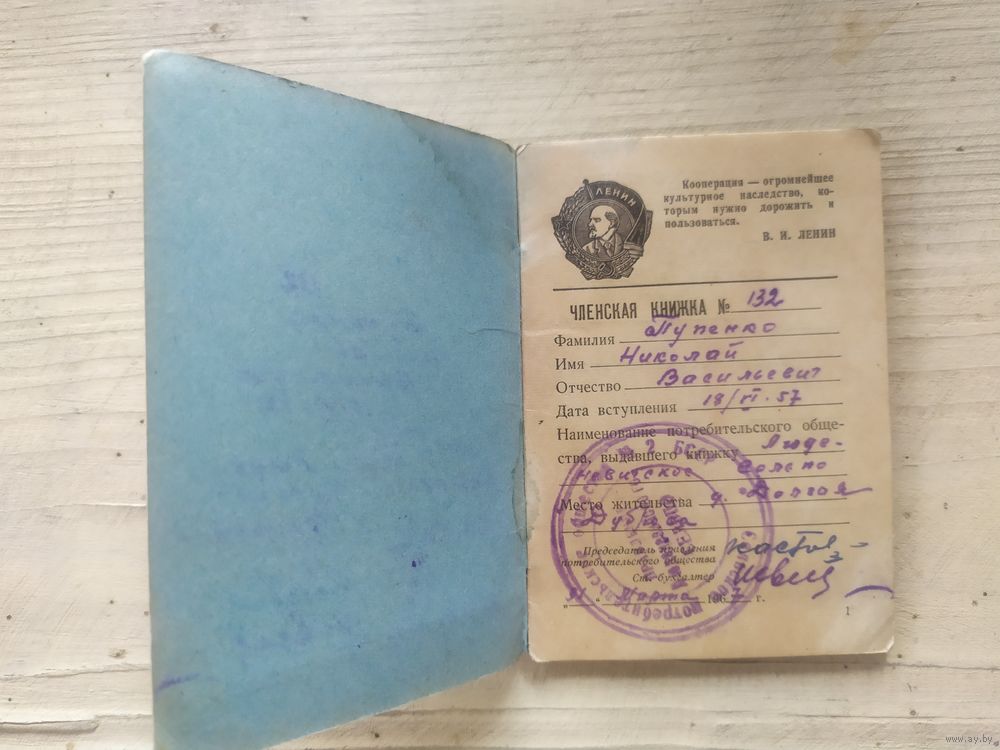 ЛЕНИН
Кооперация — огромнейшее
культурное наследство, ко-
торым нужно дорожить и
пользоваться.
В. И. ЛЕНИН
ЧЛЕНСКАЯ КНИЖКА № 132
Фамилия Тупенко
Имя Николай
Отчество Васильевич
Дата вступления 18/VI·57
Наименование потребительского обще-
ства, выдавшего книжку
Сельпо
Место жительства д. Долгая
Дубрава
Председатель правления
потребительского общества
Ст. бухгалтер
Марта 196 г.
1
www.ay.by